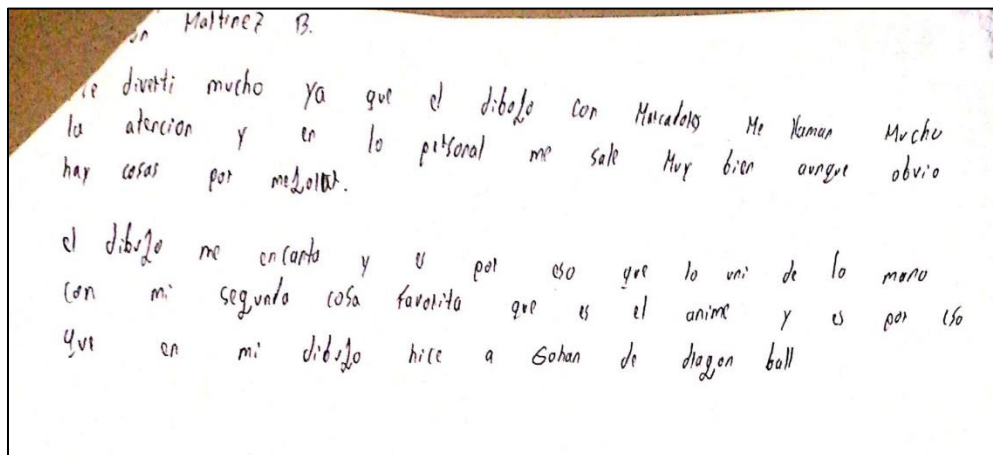 Martinez B.
diverti mucho ya que el dibojo con Marcadores Me llaman Mucho
la atencion y en lo personal me sale Muy bien aunque obvio
hay cosas por mejorar.
el dibujo me encanta y es por eso que lo uni de la mano
con mi segunda cosa favorita que es el anime y es por eso
que en mi dibujo hice a Gohan de dragon ball